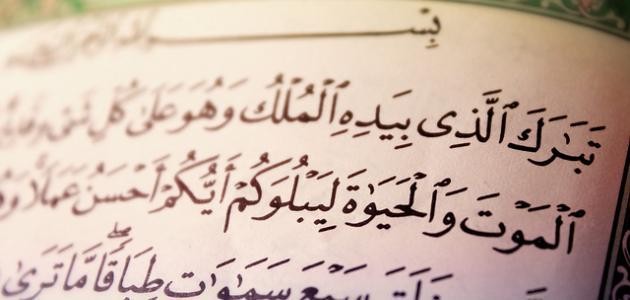 بِسْــــمِ
تَبَٰرَكَ ٱلَّذِى بِيَدِهِ ٱلْمُلْكُ وَهُوَ عَلَىٰ كُلِّ شَىْءٍ
ٱلْمَوْتَ وَٱلْحَيَوٰةَ لِيَبْلُوَكُمْ أَيُّكُمْ أَحْسَنُ عَمَلًا
سَبْعَ سَمَٰوَٰتٍ طِبَاقًا مَّا تَرَىٰ